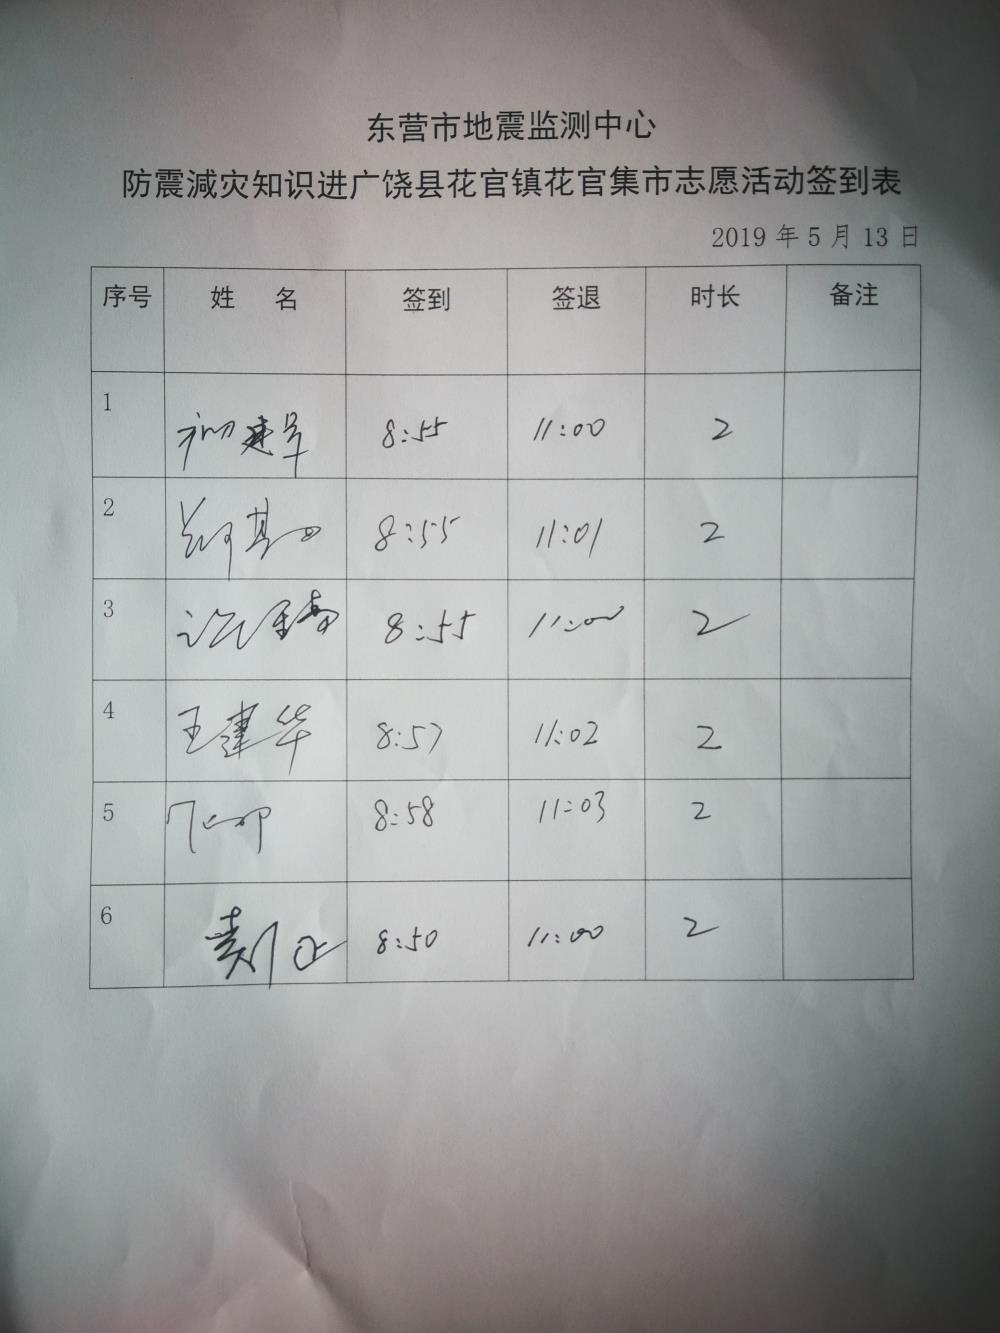 东营市地震监测中心
防震減灾知识进广饶县花官镇花官集市志愿活动签到表
2019 年 5 月 13 日
序号 姓 名 签到 签退 时长 备注
1 8:55 11:00 2
2 8:55 11:01 2
3 8:55 11:00 2
4 王建华 8:57 11:02 2
5 8:58 11:03 2
6 8:50 11:00 2